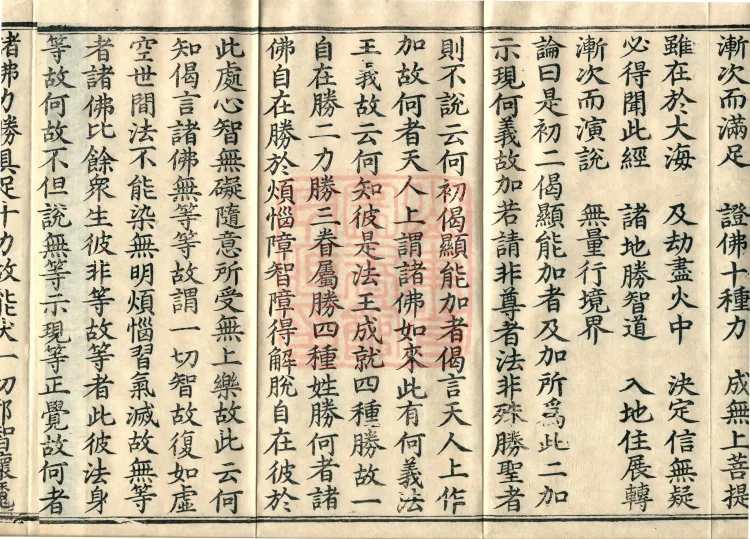 漸次而滿足　證佛十種力　成無上菩提
雖在於大海　及劫盡火中　決定信無疑
必得聞此經　諸地勝智道　入地住展轉
漸次而演說　無量行境界
論曰是初二偈顯能加者及加所為此二加
示現何義故加若請非尊者法非殊勝聖者
則不說云何初偈顯能加者偈言天人上作
加故何者天人上謂諸佛如來此有何義法
王義故云何知彼是法王成就四種勝故一
自在勝二力勝三眷屬勝四種姓勝何者諸
佛自在勝於煩惱障智障得解脫自在彼於
此處心智無礙隨意所受無上樂故此云何
知偈言諸佛無等等故謂一切智故復如虛
空世間法不能染無明煩惱習氣滅故無等
者諸佛比餘衆生彼非等故等者此彼法身
等故何故不但說無等示現等正覺故何者
諸佛力勝具足十力故能伏一切邪智壞魔